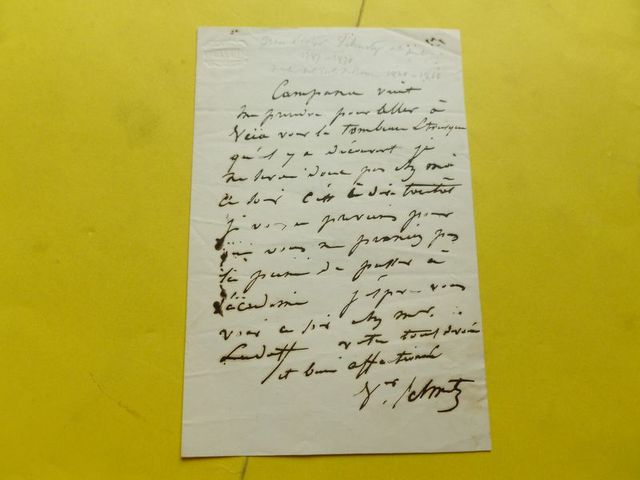 Campana vient
me prendre pour aller à
Veïa voir le tombeau Etrusque
qu'il y a découvert je
ne serai donc pas chez moi
ce soir c'est à dire tantôt
je vous en préviens pour
que vous ne preniez pas
la peine de passer à
l'académie j'espère vous
voir ce soir chez mr.
votre tout dévoué
et bien affectionné
Vor Schnetz